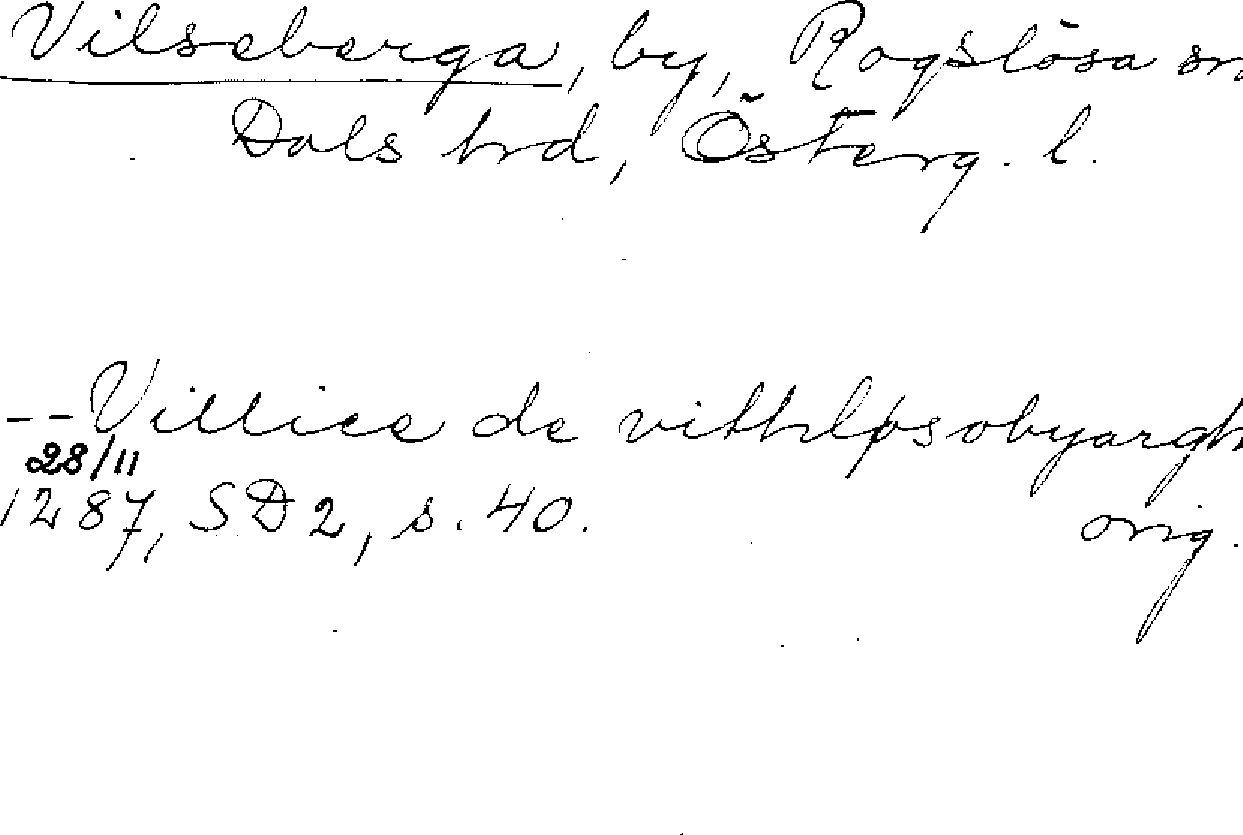 Vilseberga, by, Rogslösa sn
Dals hrd, Österg. l.
-- Villice de vithløsobyargh
28/11
1287, SD 2, s. 40. orig.